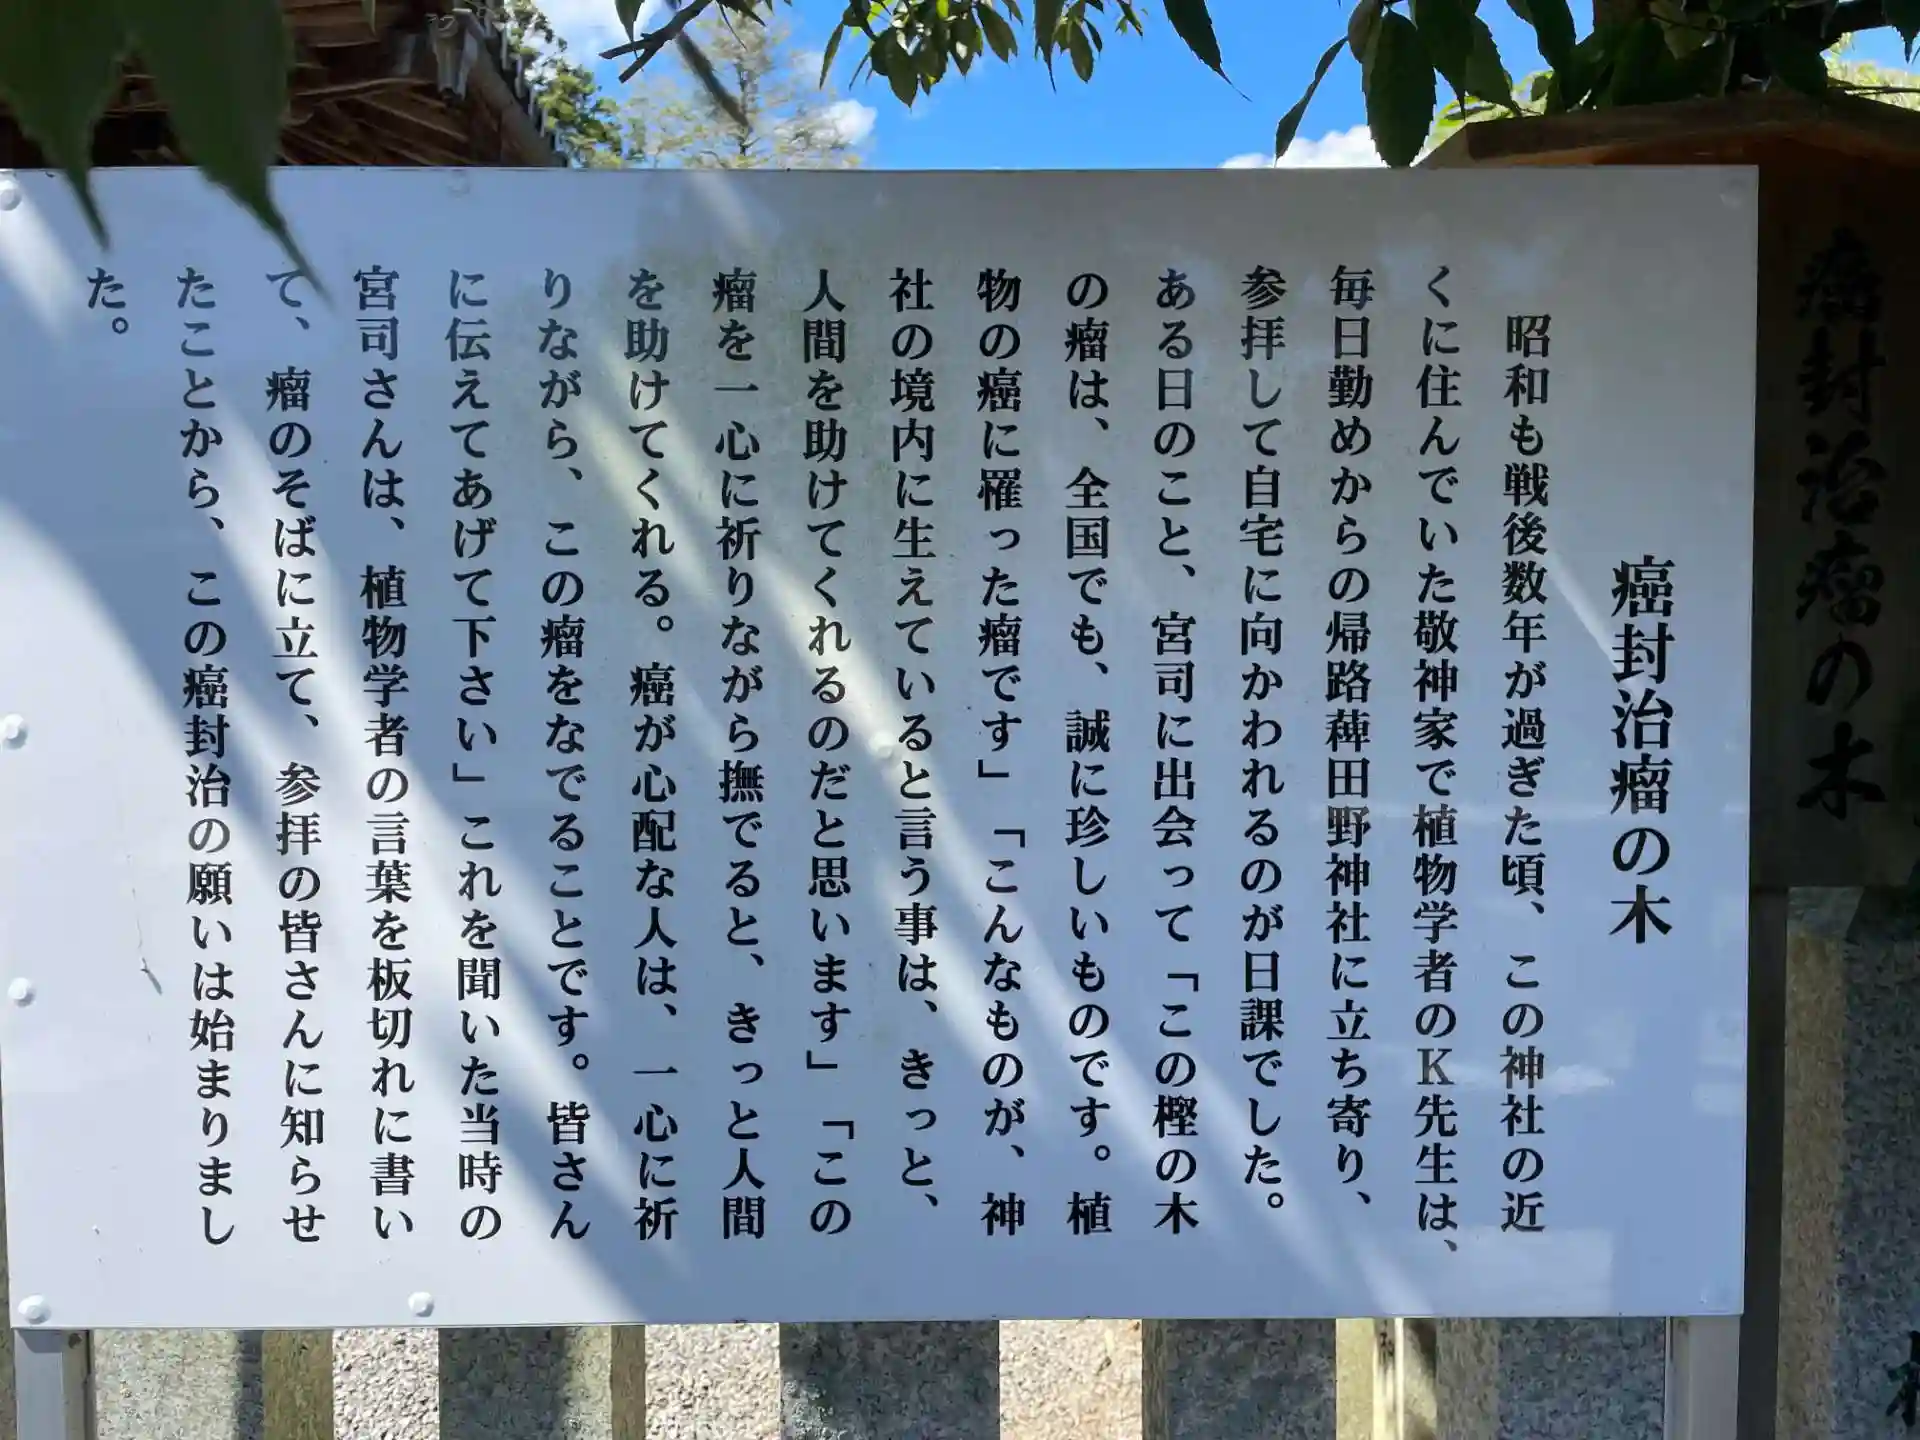 癌封治瘤の木
昭和も戦後数年が過ぎた頃、この神社の近
くに住んでいた敬神家で植物学者のK先生は、
毎日勤めからの帰路薭田野神社に立ち寄り、
参拝して自宅に向かわれるのが日課でした。
ある日のこと、宮司に出会って「この樫の木
の瘤は、全国でも、誠に珍しいものです。植
物の癌に罹った瘤です」「こんなものが、神
社の境内に生えていると言う事は、きっと、
人間を助けてくれるのだと思います」「この
瘤を一心に祈りながら撫でると、きっと人間
を助けてくれる。癌が心配な人は、一心に祈
りながら、この瘤をなでることです。皆さん
に伝えてあげて下さい」これを聞いた当時の
宮司さんは、植物学者の言葉を板切れに書い
て、瘤のそばに立て、参拝の皆さんに知らせ
たことから、この癌封治の願いは始まりまし
た。
癌封治瘤の木